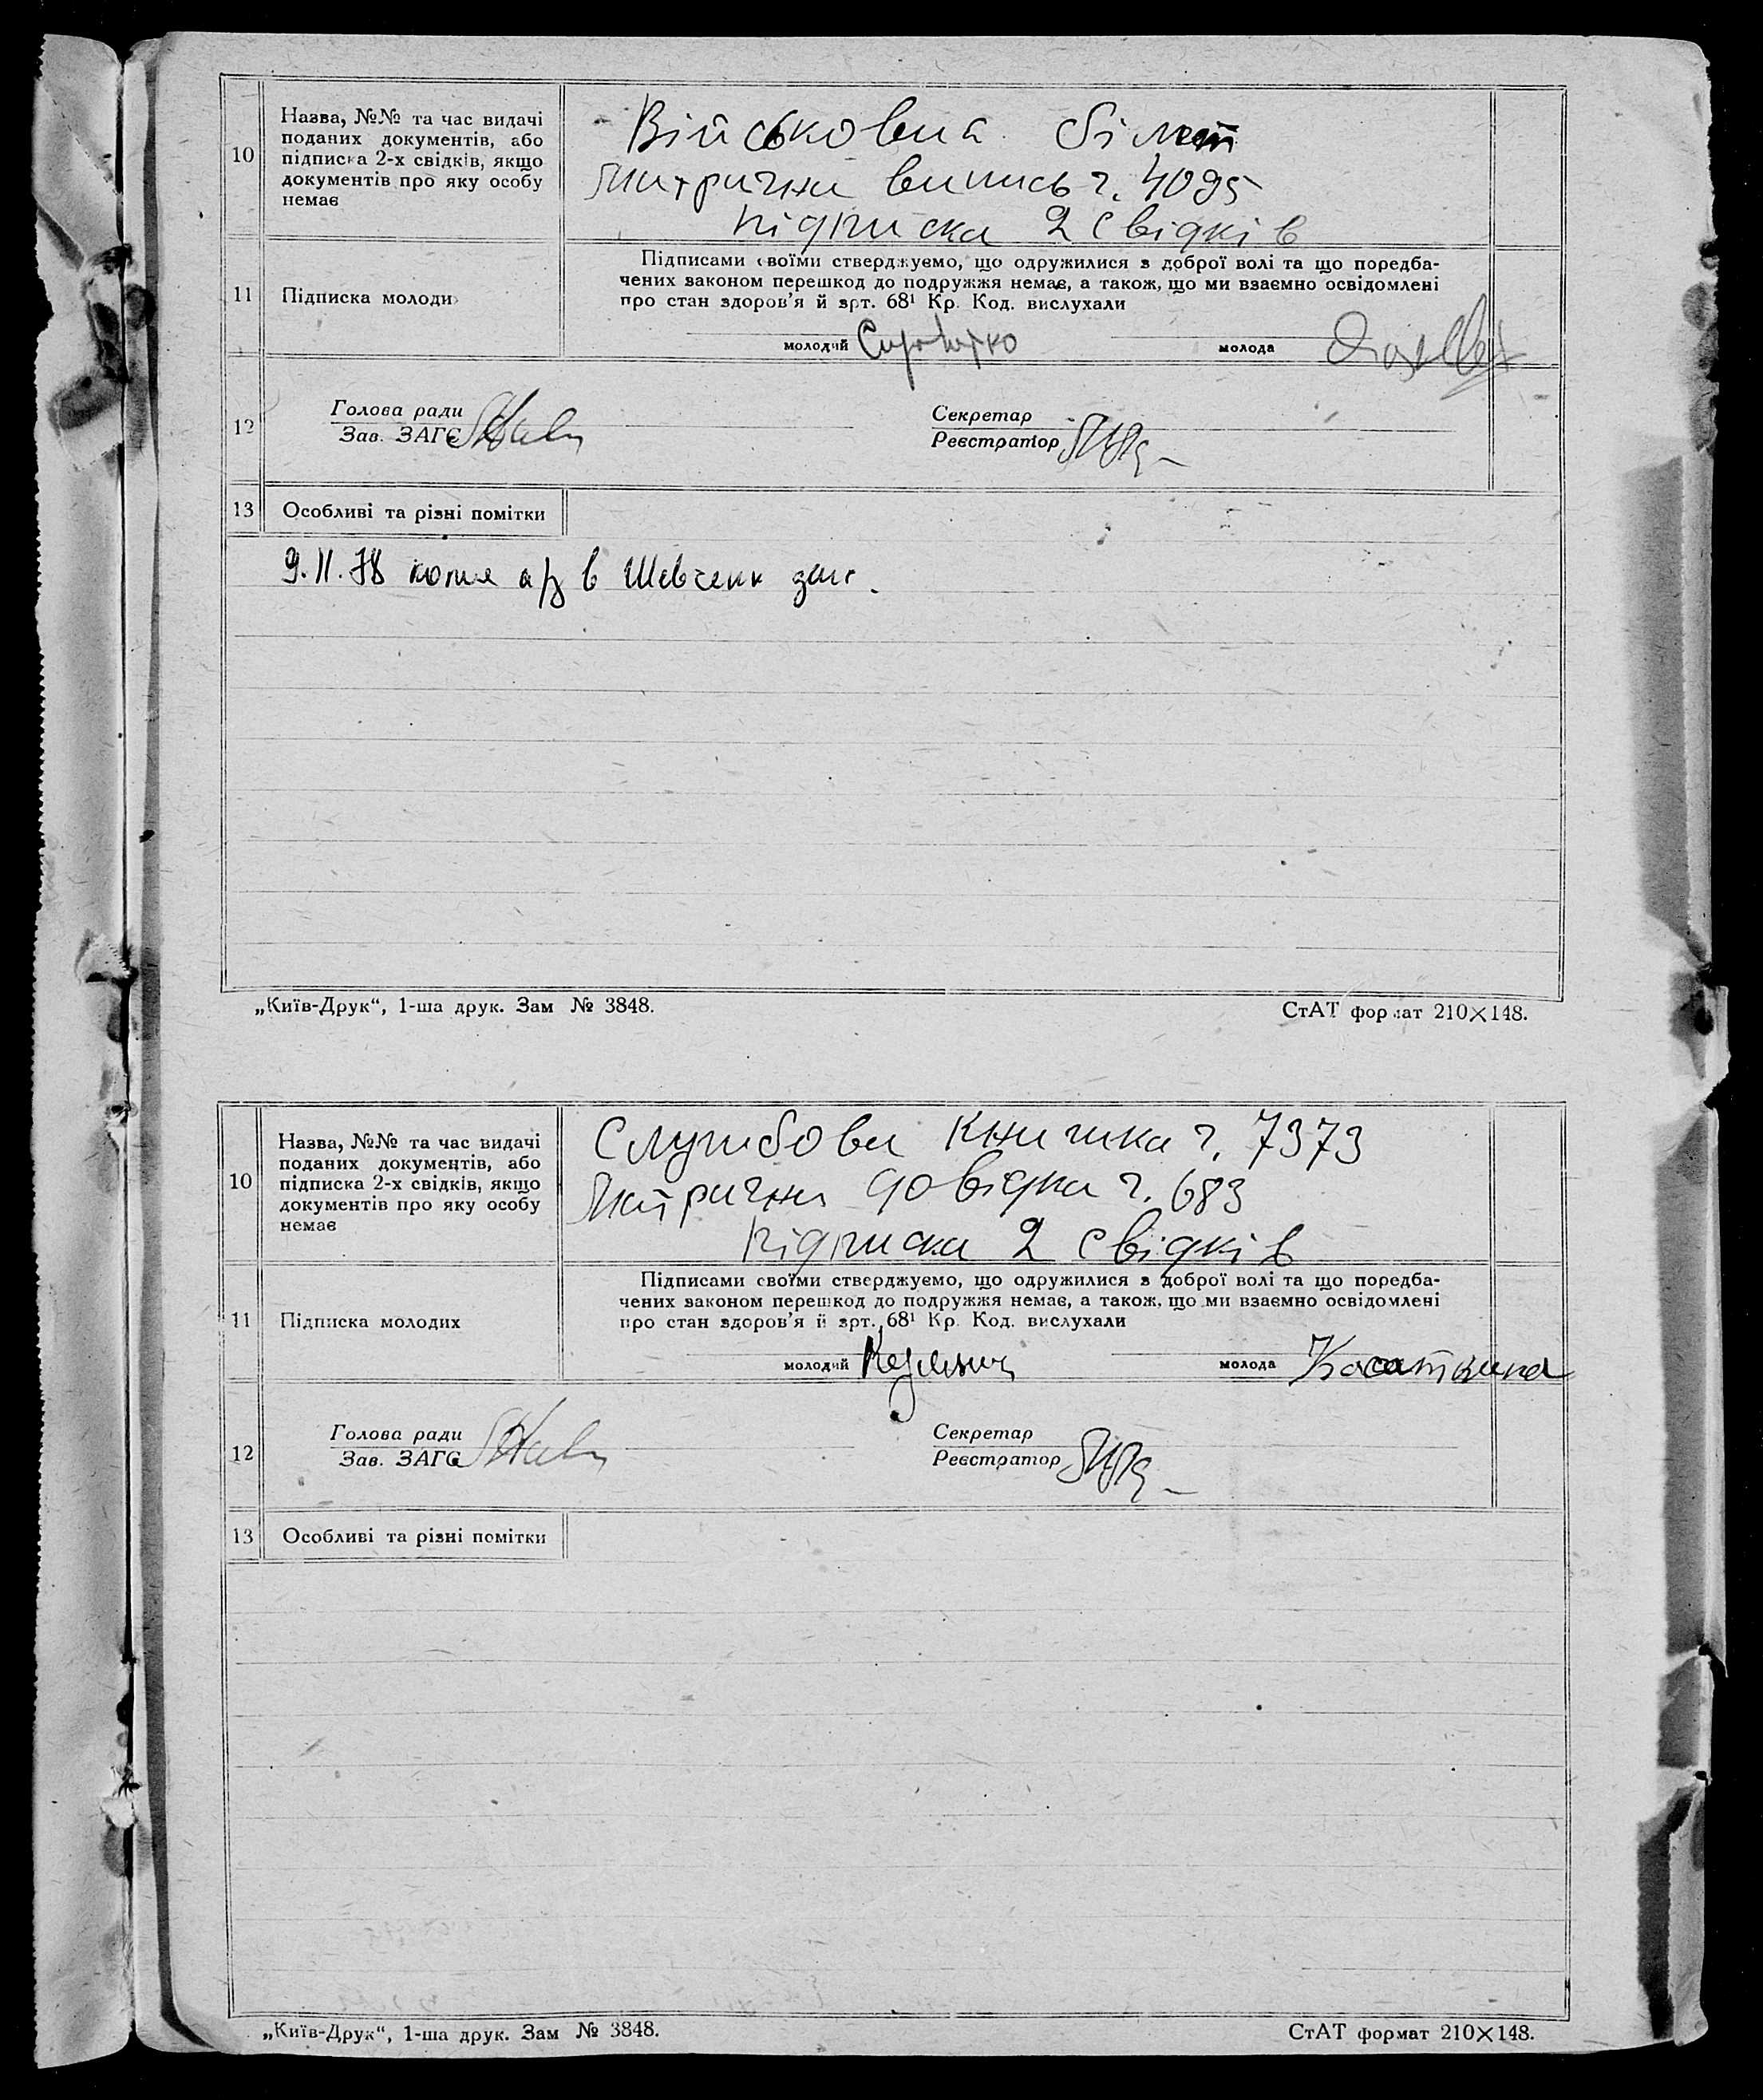 10
Назва, №№ та час видачі
поданих документів, або
підписка 2-х свідків, якщо
документів про яку особу
немає
Військовий білет
Митрична випись ч. 4095
підписка 2 свідків
11
Підписка молоди
Підписами своїми стверджуємо, що одружилися з доброї волі та що поредба-
чених законом перешкод до подружжя немає, а також, що ми взаємно освідомлені
про стан здоров'я й зрт. 68¹ Кр. Код. вислухали
молодий
молода
12
Голова ради
Зав. ЗАГС
Секретар
Реєстратор
13
Особливі та різні помітки
9.II.78 копия а/з в Шевченк
„Київ-Друк“, 1-ша друк. Зам № 3848.
СтАТ формат 210×148.
10
Назва, №№ та час видачі
поданих документів, або
підписка 2-х свідків, якщо
документів про яку особу
немає
Службова книжка ч. 7373
Митрична довідка ч. 683
підписка 2 свідків
11
Підписка молодих
Підписами своїми стверджуємо, що одружилися з доброї волі та що поредба-
чених законом перешкод до подружжя немає, а також, що ми взаємно освідомлені
про стан здоров'я й зрт. 68¹ Кр. Код. вислухали
молодий
молода Касаткина
12
Голова ради
Зав. ЗАГС
Секретар
Реєстратор
13
Особливі та різні помітки
„Київ-Друк“, 1-ша друк. Зам № 3848.
СтАТ формат 210×148.